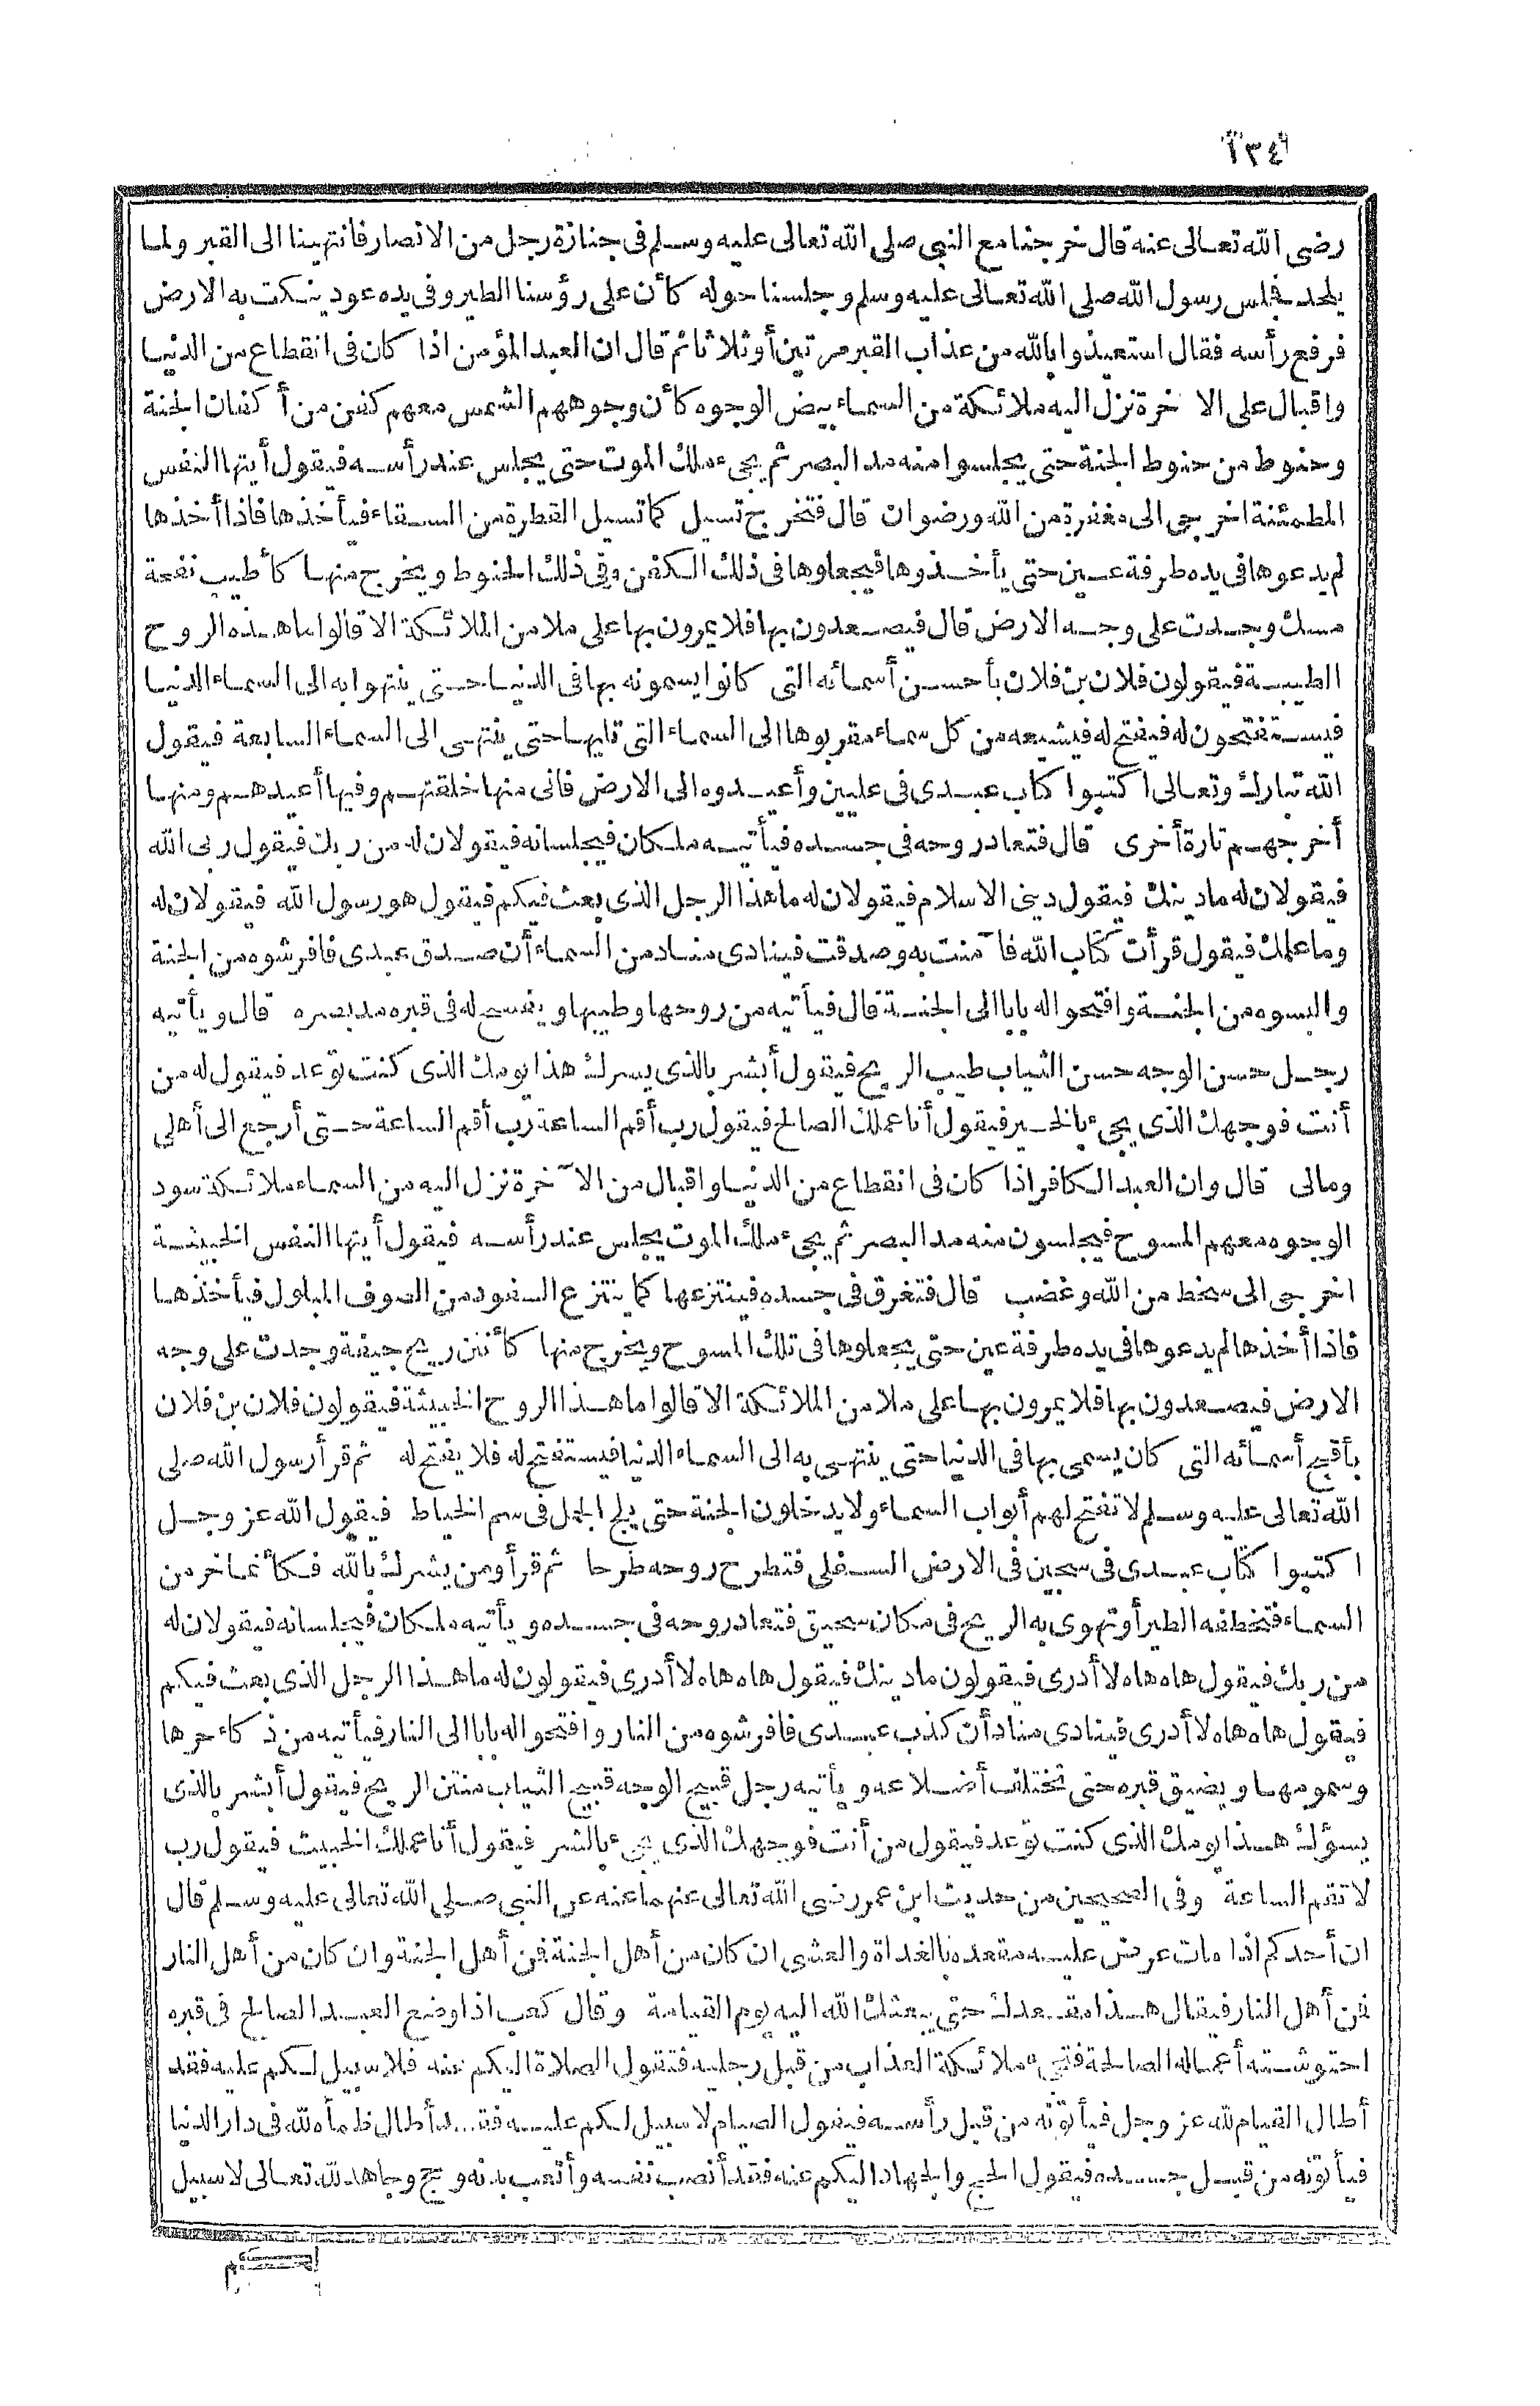 ٢٣٤
رضى الله تعالى عنه قال خرجنا مع النبى صلى الله تعالى عليه وسلم فى جنازة رجل من الانصار فانتهينا الى القبر ولما
يلحد فجلس رسول الله صلى الله تعالى عليه وسلم وجلسنا حوله كأن على رؤسنا الطير وفى يده عود ينكت به الارض
فرفع رأسه فقال استعيذوا بالله من عذاب القبر مرتين أو ثلاثا ثم قال ان العبد المؤمن اذا كان فى انقطاع من الدنيا
واقبال على الآخرة نزل اليه ملائكة من السماء بيض الوجوه كأن وجوههم الشمس معهم كفن من أكفان الجنة
وحنوط من حنوط الجنة حتى يجلسوا منه مد البصر ثم يجىء ملك الموت حتى يجلس عند رأسه فيقول أيتها النفس
المطمئنة اخرجى الى مغفرة من الله ورضوان قال فتخرج تسيل كما تسيل القطرة من السقاء فيأخذها فاذا أخذها
لم يدعوها فى يده طرفة عين حتى يأخذوها فيجعلوها فى ذلك الكفن وفى ذلك الحنوط ويخرج منها كأطيب نفحة
مسك وجدت على وجه الارض قال فيصعدون بها فلا يمرون بها على ملا من الملائكة الا قالوا ما هذه الروح
الطيبة فيقولون فلان بن فلان بأحسن أسمائه التى كانوا يسمونه بها فى الدنيا حتى ينتهوا به الى السماء الدنيا
فيستفتحون له فيفتح له فيشيعه من كل سماء مقربوها الى السماء التى تليها حتى ينتهى الى السماء السابعة فيقول
الله تبارك وتعالى اكتبوا كتاب عبدى فى عليين وأعيدوه الى الارض فانى منها خلقتهم وفيها أعيدهم ومنها
أخرجهم تارة أخرى قال فتعاد روحه فى جسده فيأتيه ملكان فيجلسانه فيقولان له من ربك فيقول ربى الله
فيقولان له ما دينك فيقول دينى الاسلام فيقولان له ما هذا الرجل الذى بعث فيكم فيقول هو رسول الله فيقولان له
وما علمك فيقول قرأت كتاب الله فآمنت به وصدقت فينادى مناد من السماء أن صدق عبدى فافرشوه من الجنة
والبسوه من الجنة وافتحوا له بابا الى الجنة قال فيأتيه من روحها وطيبها ويفسح له فى قبره مد بصره قال ويأتيه
رجل حسن الوجه حسن الثياب طيب الريح فيقول أبشر بالذى يسرك هذا يومك الذى كنت توعد فيقول له من
أنت فوجهك الذى يجىء بالخير فيقول أنا عملك الصالح فيقول رب أقم الساعة رب أقم الساعة حتى أرجع الى أهلى
ومالى قال وان العبد الكافر اذا كان فى انقطاع من الدنيا واقبال من الآخرة نزل اليه من السماء ملائكة سود
الوجوه معهم المسوح فيجلسون منه مد البصر ثم يجىء ملك الموت يجلس عند رأسه فيقول أيتها النفس الخبيثة
اخرجى الى سخط من الله وغضب قال فتغرق فى جسده فينتزعها كما ينتزع السفود من الصوف المبلول فيأخذها
فاذا أخذها لم يدعوها فى يده طرفة عين حتى يجعلوها فى تلك المسوح ويخرج منها كأنتن ريح جيفة وجدت على وجه
الارض فيصعدون بها فلا يمرون بها على ملا من الملائكة الا قالوا ما هذا الروح الخبيثة فيقولون فلان بن فلان
بأقبح أسمائه التى كان يسمى بها فى الدنيا حتى ينتهى به الى السماء الدنيا فيستفتح له فلا يفتح له ثم قرأ رسول الله صلى
الله تعالى عليه وسلم لا تفتح لهم أبواب السماء ولا يدخلون الجنة حتى يلج الجمل فى سم الخياط فيقول الله عز وجل
اكتبوا كتاب عبدى فى سجين فى الارض السفلى فتطرح روحه طرحا ثم قرأ ومن يشرك بالله فكأنما خر من
السماء فتخطفه الطير أو تهوى به الريح فى مكان سحيق فتعاد روحه فى جسده ويأتيه ملكان فيجلسانه فيقولان له
من ربك فيقول هاه هاه لا أدرى فيقولون ما دينك فيقول هاه هاه لا أدرى فيقولون له ما هذا الرجل الذى بعث فيكم
فيقول هاه هاه لا أدرى فينادى مناد أن كذب عبدى فافرشوه من النار وافتحوا له بابا الى النار فيأتيه من ذكاء حرها
وسمومها ويضيق قبره حتى تختلف أضلاعه ويأتيه رجل قبيح الوجه قبيح الثياب منتن الريح فيقول أبشر بالذى
يسؤك هذا يومك الذى كنت توعد فيقول من أنت فوجهك الذى يجىء بالشر فيقول أنا عملك الخبيث فيقول رب
لا تقم الساعة وفى الصحيحين من حديث ابن عمر رضى الله تعالى عنهما عنه عن النبى صلى الله تعالى عليه وسلم قال
ان أحدكم اذا مات عرض عليه مقعده بالغداة والعشى ان كان من أهل الجنة فمن أهل الجنة وان كان من أهل النار
فمن أهل النار فيقال هذا مقعدك حتى يبعثك الله اليه يوم القيامة وقال كعب اذا وضع العبد الصالح فى قبره
احتوشته أعماله الصالحة فتجىء ملائكة العذاب من قبل رجليه فتقول الصلاة اليكم عنه فلا سبيل لكم عليه فقد
أطال القيام لله عز وجل فيأتونه من قبل رأسه فيقول الصيام لا سبيل لكم عليه فقد أطال ظمأه لله فى دار الدنيا
فيأتونه من قبل جسده فيقول الحج والجهاد اليكم عنه فقد أنصب نفسه وأتعب بدنه وحج وجاهد لله تعالى لا سبيل
لكم